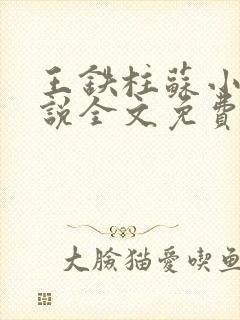 王鉄柱蘇小
説全文免費
大臉猫愛喫魚